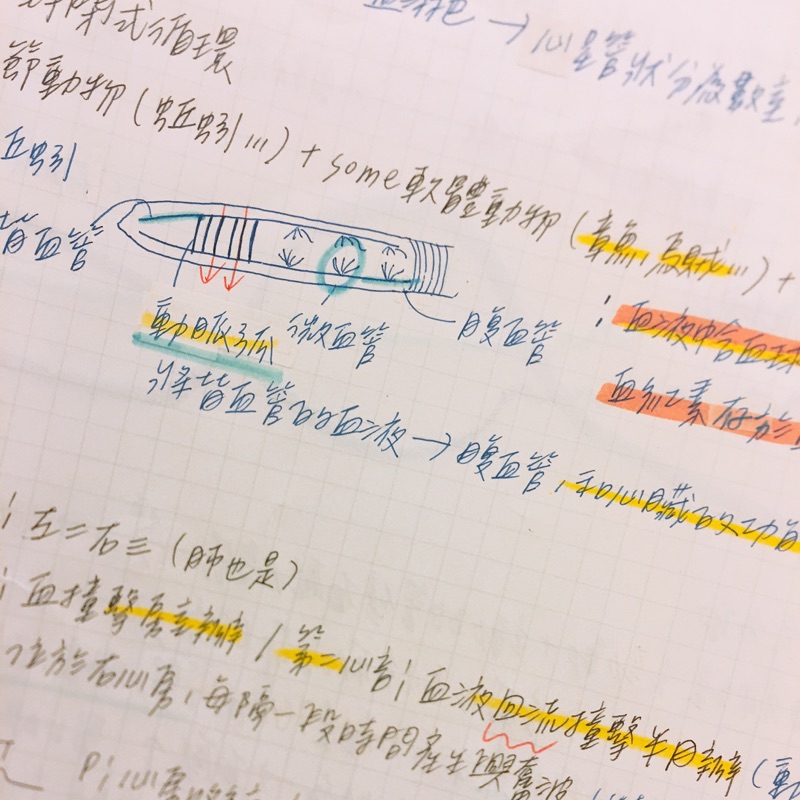 血淋巴 → 心呈管狀分為數室
閉鎖式循環
節動物 (蚯蚓...) + some軟體動物 (章魚,烏賊...) +
蚯蚓
背血管
動脈弧
微血管
腹血管
; 血液中含血球
血紅素存於
將背血管的血液 → 腹血管,和心臟的功能
; 左二右三 (肺也是)
; 血撞擊房室瓣 / 第二心音; 血液回流撞擊半月瓣 (動
位於右心房,每隔一段時間產生興奮波
P; 心房收縮